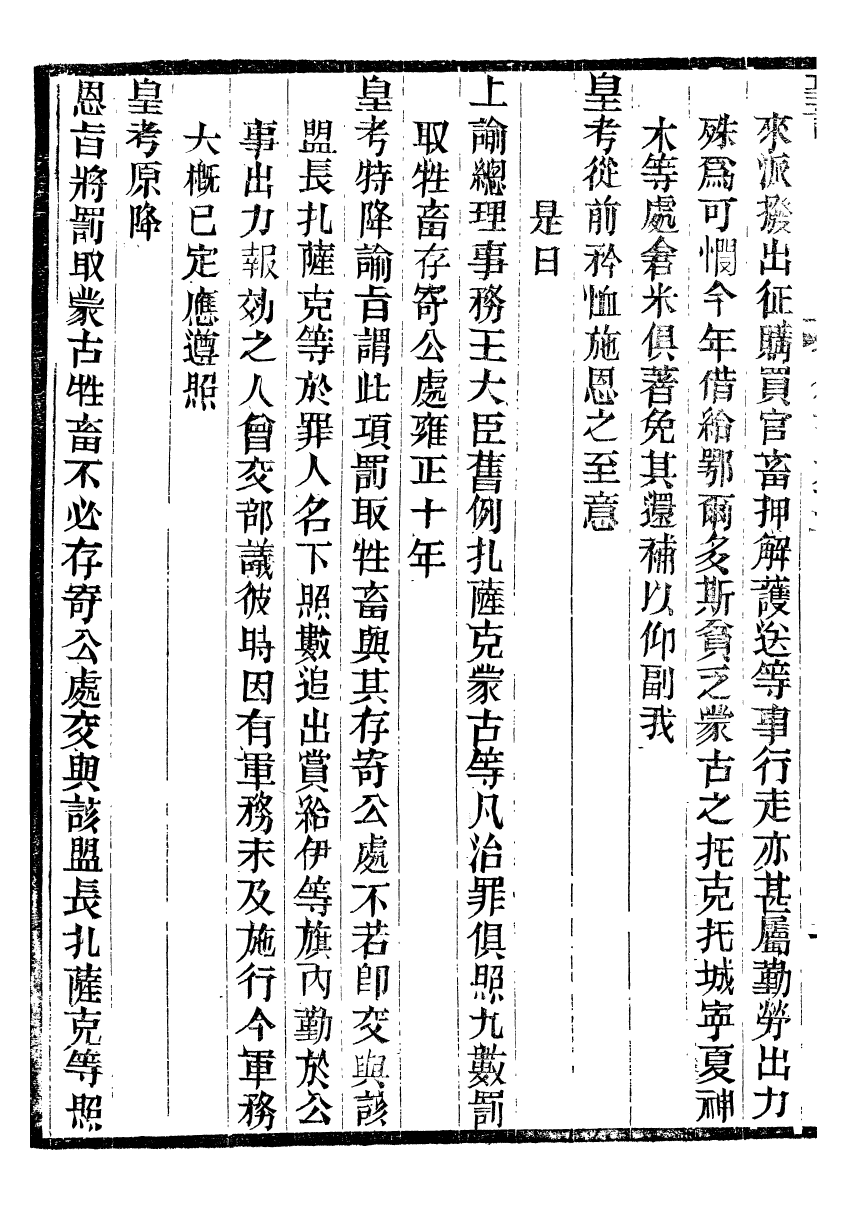 來派撥出征購買官畜押解護送等事行走亦甚屬勤勞出力
殊爲可憫今年借給鄂爾多斯貧乏蒙古之托克托城寧夏神
木等處倉米俱著免其還補以仰副我
皇考從前矜恤施恩之至意
是日
上諭總理事務王大臣舊例扎薩克蒙古等凡治罪俱照九數罰
取牲畜存寄公處雍正十年
皇考特降諭旨謂此項罰取牲畜與其存寄公處不若卽交與該
盟長扎薩克等於罪人名下照數追出賞給伊等旗內勤於公
事出力報効之人曾交部議彼時因有軍務未及施行今軍務
大槪已定應遵照
皇考原降
恩旨將罰取蒙古牲畜不必存寄公處交與該盟長扎薩克等照